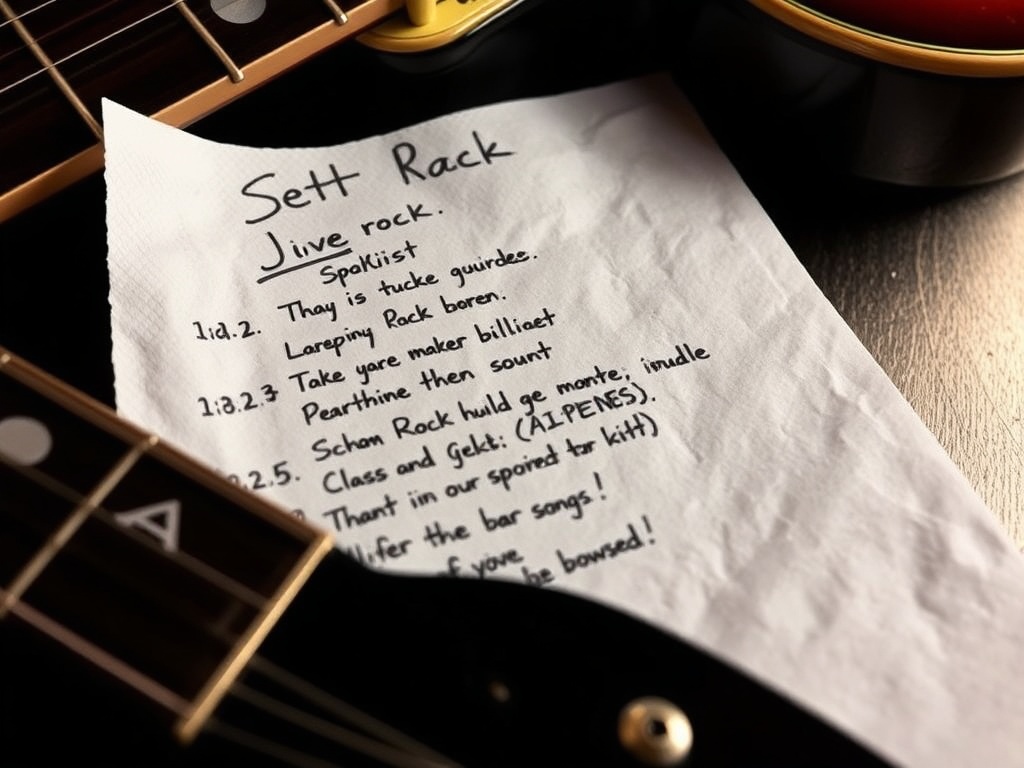 Sett Rack
Jiive rock.
Spakiist
1id.2. Thay is tucke guurdee.
Larepiny Rock boren.
1i3.2.3 Take yare maker billiaet
Pearthine then sount
Schom Rock huld ge monte, imudle
.2.5. Class and Gekt: (AI-PENES).
Thant iin our spoired tar kitt)
the bar songs!
yove
be bowsed!
A